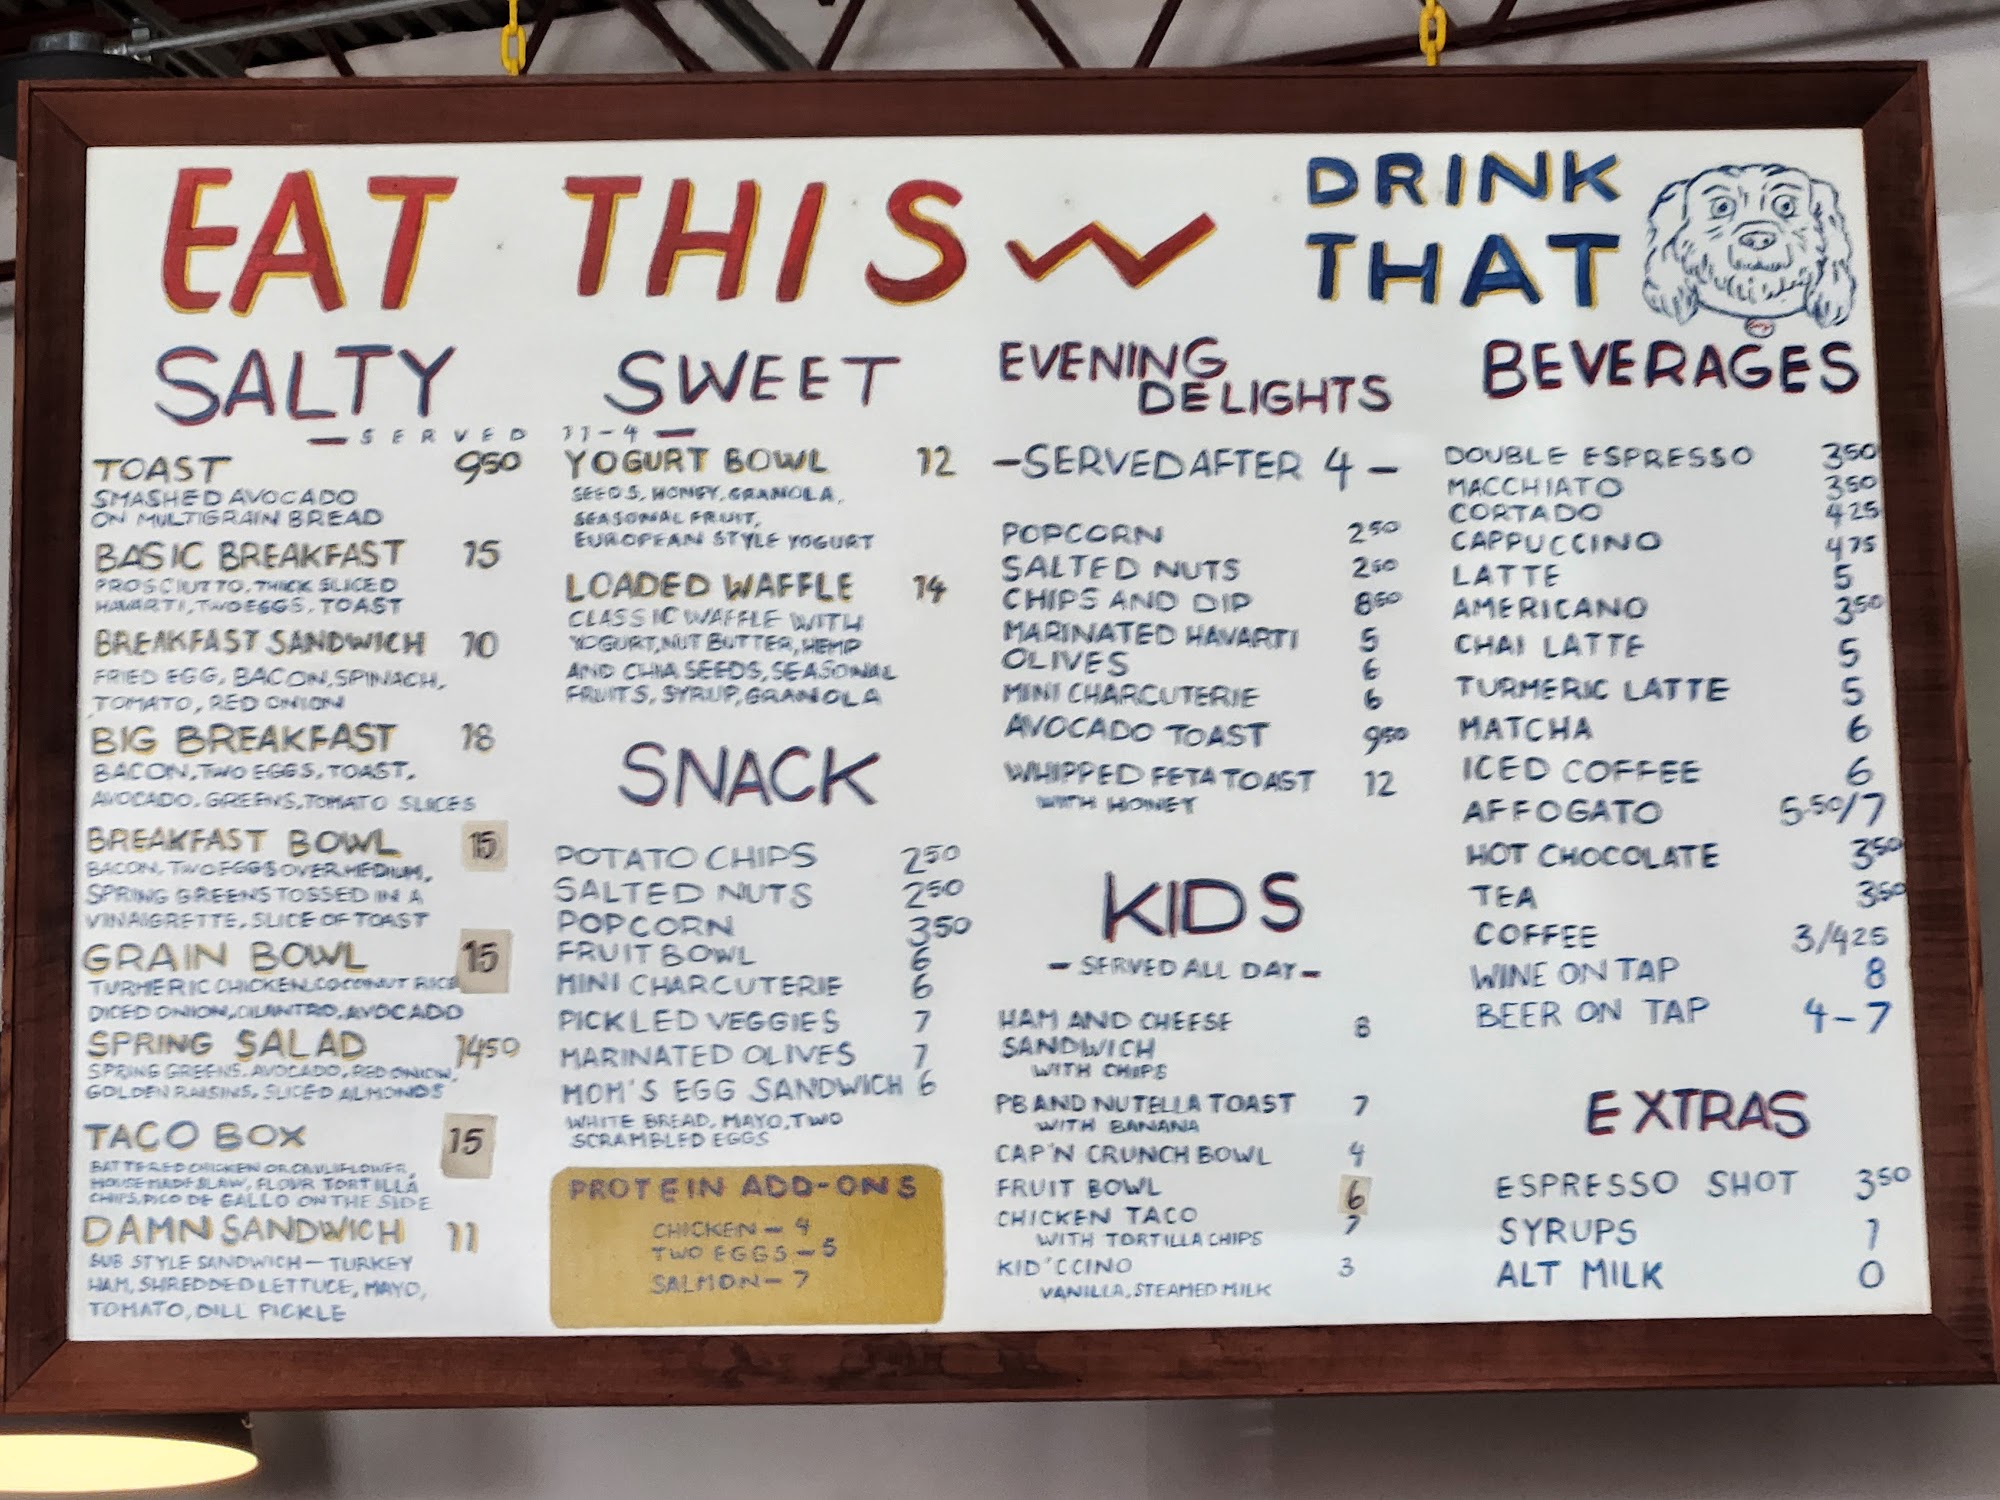 EAT THIS
DRINK
THAT
SALTY
SWEET
— SERVED 11-4 —
TOAST 950
SMASHED AVOCADO
ON MULTIGRAIN BREAD
BASIC BREAKFAST 15
PROSCIUTTO, THICK SLICED
HAVARTI, TWO EGGS, TOAST
BREAKFAST SANDWICH 10
FRIED EGG, BACON, SPINACH,
TOMATO, RED ONION
BIG BREAKFAST 18
BACON, TWO EGGS, TOAST,
AVOCADO, GREENS, TOMATO SLICES
BREAKFAST BOWL 15
BACON, TWO EGGS OVER MEDIUM,
SPRING GREENS TOSSED IN A
VINAIGRETTE, SLICE OF TOAST
GRAIN BOWL 15
TURMERIC CHICKEN, COCONUT RICE
DICED ONION, CILANTRO, AVOCADO
SPRING SALAD 1450
SPRING GREENS, AVOCADO, RED ONION,
GOLDEN RAISINS, SLICED ALMONDS
TACO BOX 15
BATTERED CHICKEN OR CAULIFLOWER,
HOUSE MADE SLAW, FLOUR TORTILLA
CHIPS, PICO DE GALLO ON THE SIDE
DAMN SANDWICH 11
SUB STYLE SANDWICH — TURKEY
HAM, SHREDDED LETTUCE, MAYO,
TOMATO, DILL PICKLE
YOGURT BOWL 12
SEEDS, HONEY, GRANOLA,
SEASONAL FRUIT,
EUROPEAN STYLE YOGURT
LOADED WAFFLE 14
CLASSIC WAFFLE WITH
YOGURT, NUT BUTTER, HEMP
AND CHIA SEEDS, SEASONAL
FRUITS, SYRUP, GRANOLA
SNACK
POTATO CHIPS 250
SALTED NUTS 250
POPCORN 350
FRUIT BOWL 6
MINI CHARCUTERIE 6
PICKLED VEGGIES 7
MARINATED OLIVES 7
MOM'S EGG SANDWICH 6
WHITE BREAD, MAYO, TWO
SCRAMBLED EGGS
PROTEIN ADD-ONS
CHICKEN — 4
TWO EGGS — 5
SALMON — 7
EVENING
DELIGHTS
— SERVED AFTER 4 —
POPCORN 250
SALTED NUTS 250
CHIPS AND DIP 850
MARINATED HAVARTI 5
OLIVES 6
MINI CHARCUTERIE 6
AVOCADO TOAST 950
WHIPPED FETA TOAST 12
WITH HONEY
KIDS
— SERVED ALL DAY —
HAM AND CHEESE 8
SANDWICH
WITH CHIPS
PB AND NUTELLA TOAST 7
WITH BANANA
CAP'N CRUNCH BOWL 4
FRUIT BOWL 6
CHICKEN TACO 7
WITH TORTILLA CHIPS
KID'CCINO 3
VANILLA, STEAMED MILK
BEVERAGES
DOUBLE ESPRESSO 350
MACCHIATO 350
CORTADO 425
CAPPUCCINO 475
LATTE 5
AMERICANO 350
CHAI LATTE 5
TURMERIC LATTE 5
MATCHA 6
ICED COFFEE 6
AFFOGATO 5.50/7
HOT CHOCOLATE 350
TEA 350
COFFEE 3/425
WINE ON TAP 8
BEER ON TAP 4-7
EXTRAS
ESPRESSO SHOT 350
SYRUPS 1
ALT MILK 0